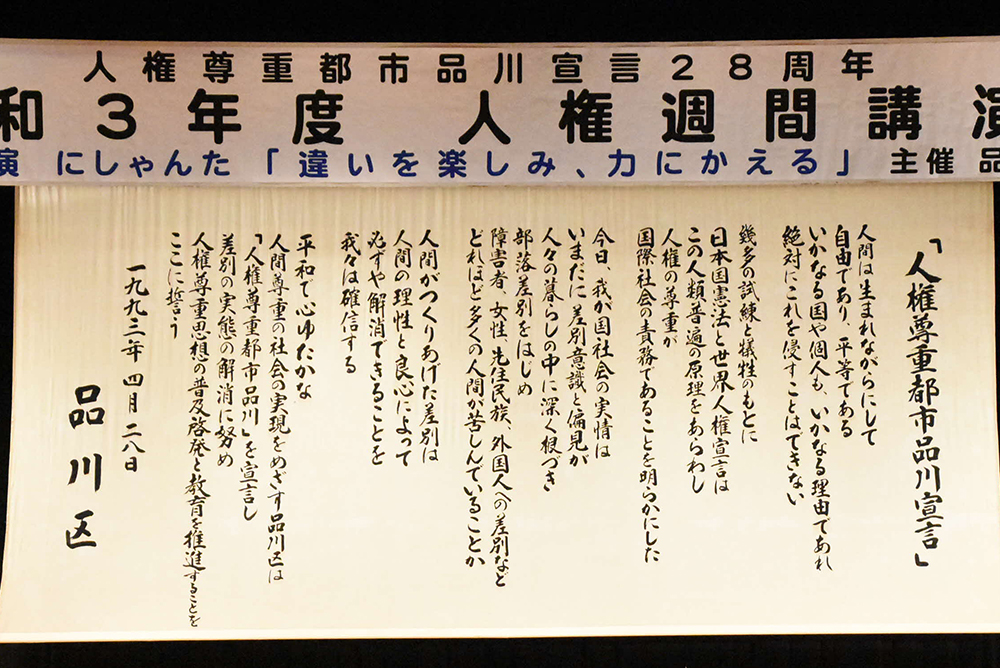 人権尊重都市品川宣言28周年
和3年度 人権週間講演
演 にしゃんた「違いを楽しみ、力にかえる」 主催 品
「人権尊重都市品川宣言」
人間は生まれながらにして
自由であり、平等である
いかなる国や個人も、いかなる理由であれ
絶対にこれを侵すことはできない
幾多の試練と犠牲のもとに
日本国憲法と世界人権宣言は
この人類普遍の原理をあらわし
人権の尊重が
国際社会の責務であることを明らかにした
今日、我が国社会の実情は
いまだに差別意識と偏見が
人々の暮らしの中に深く根づき
部落差別をはじめ
障害者、女性、先住民族、外国人への差別など
どれほど多くの人間が苦しんでいることか
人間がつくりあげた差別は
人間の理性と良心によって
必ずや解消できることを
我々は確信する
平和で心ゆたかな
人間尊重の社会の実現をめざす品川区は
「人権尊重都市品川」を宣言し
差別の実態の解消に努め
人権尊重思想の普及啓発と教育を推進することを
ここに誓う
一九九三年四月二八日
品川区